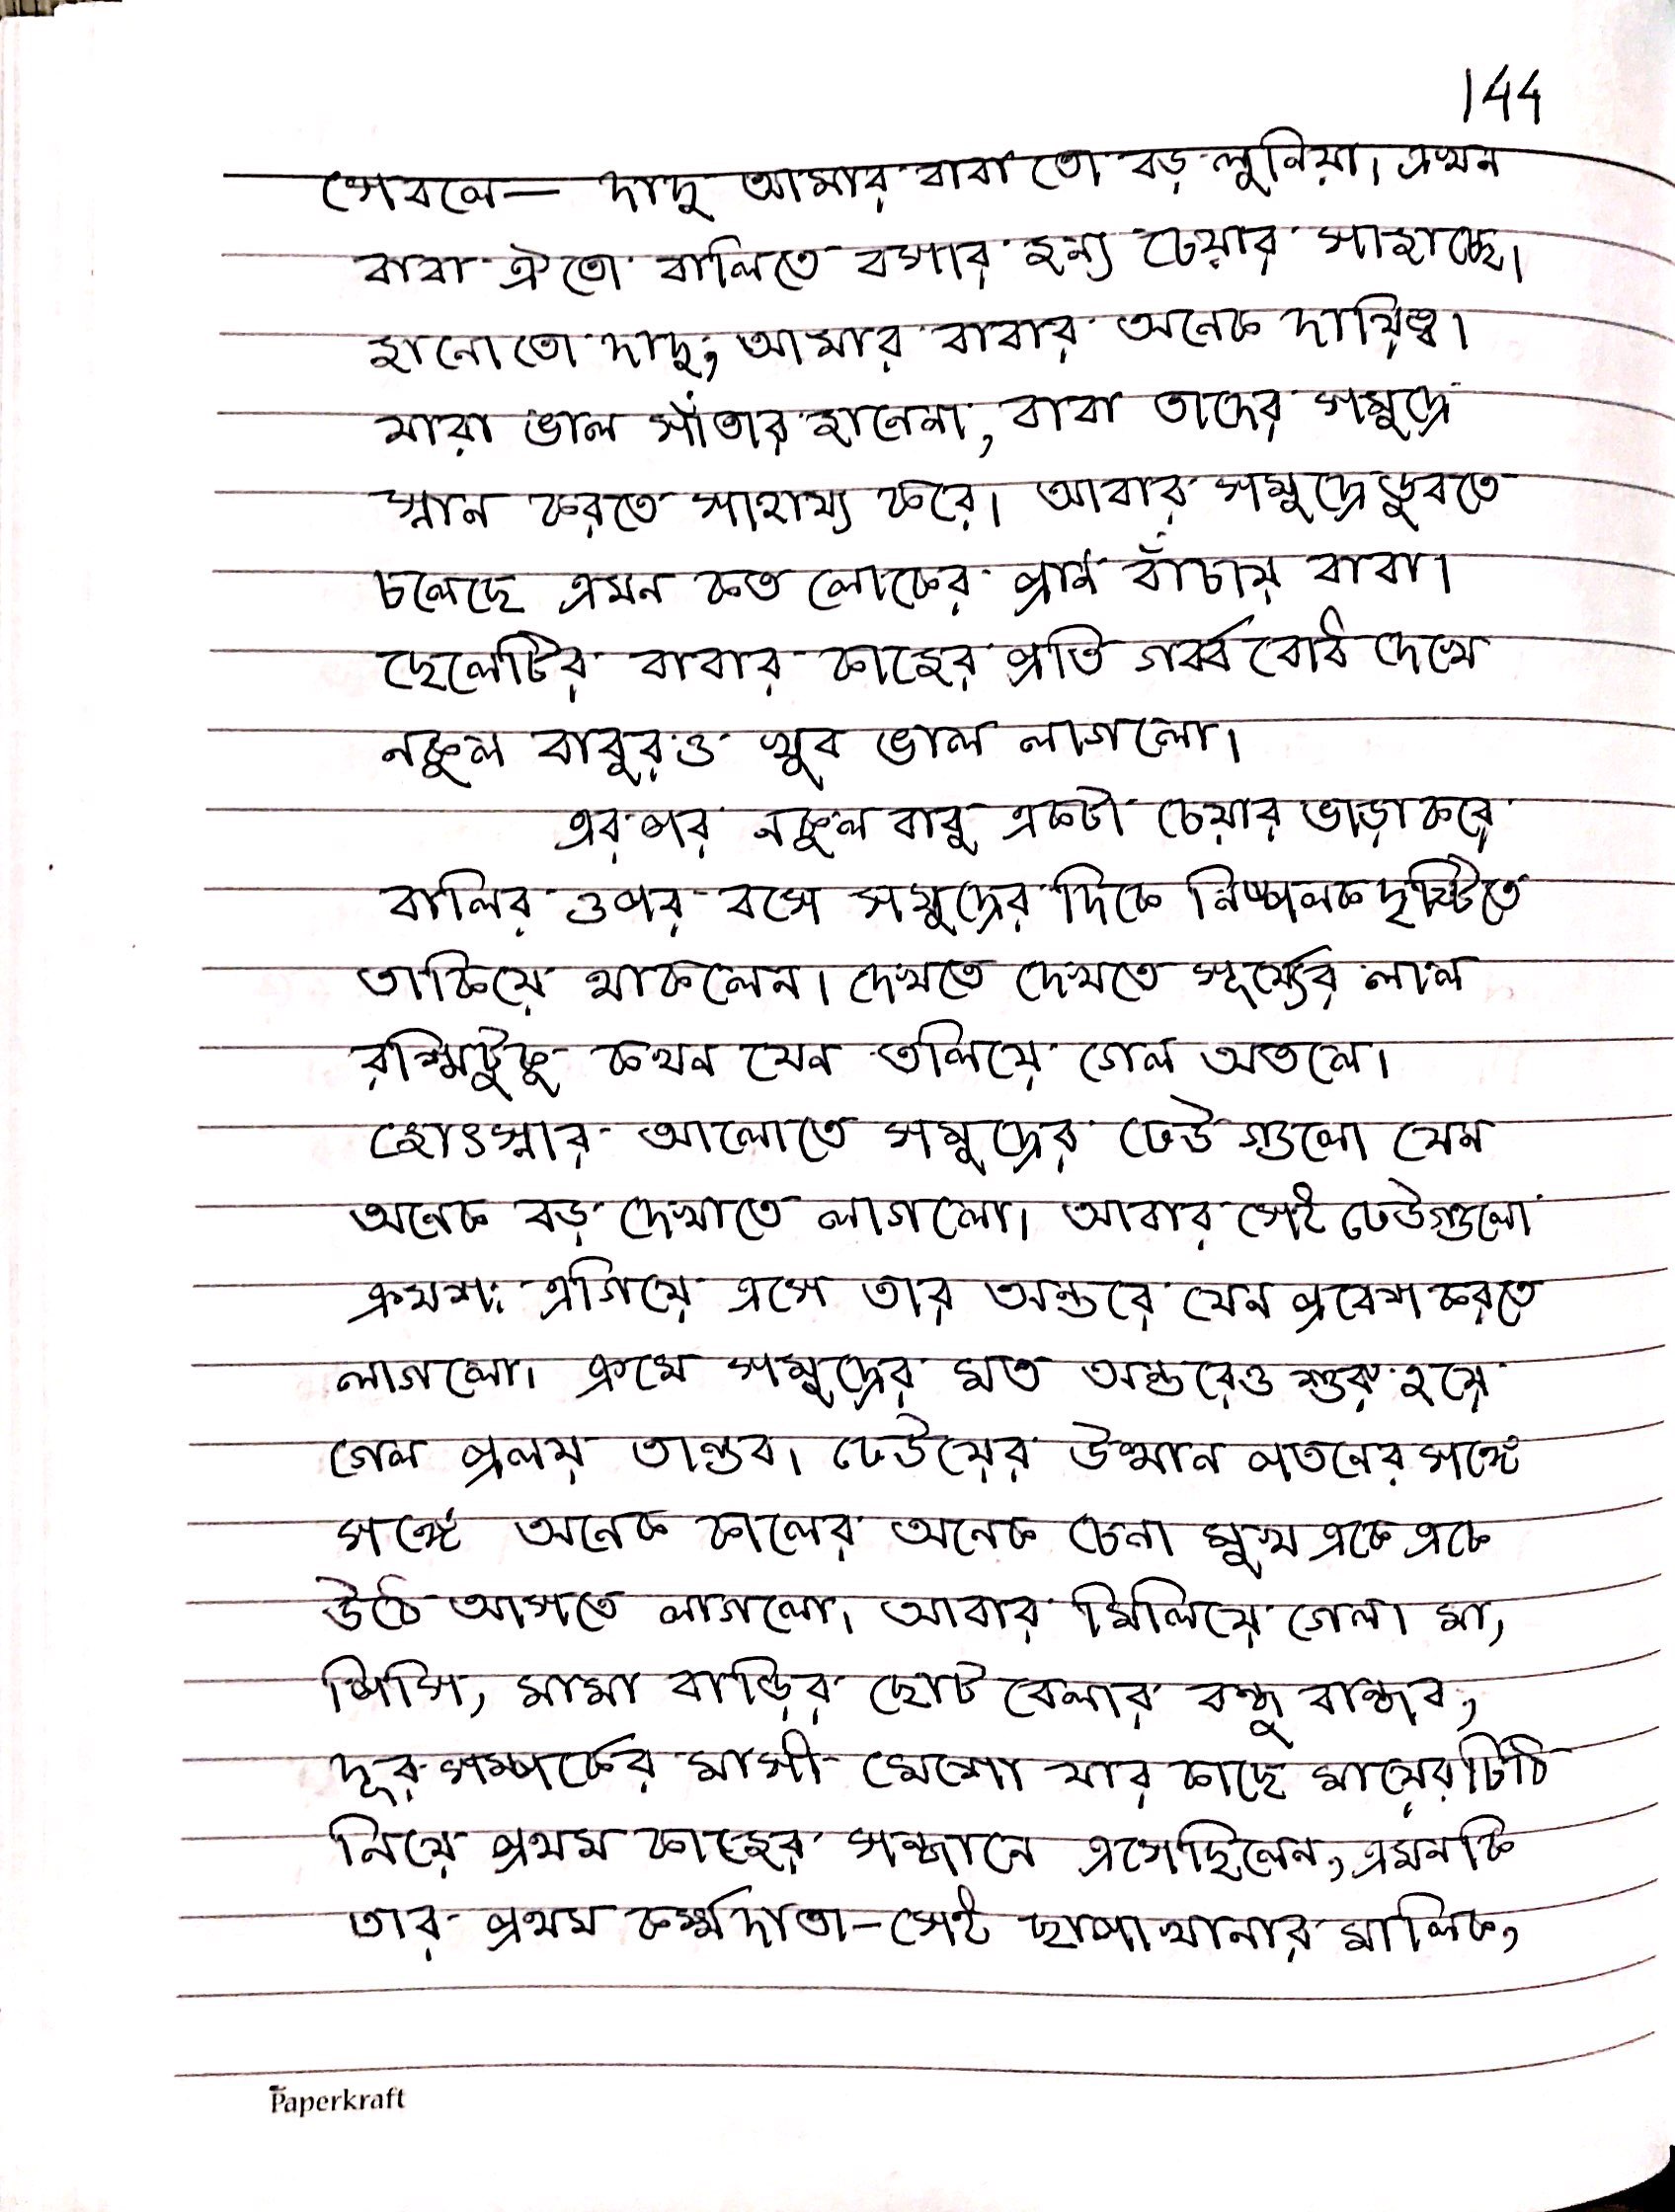 144
সে বলে— দাদু আমার বাবা তো বড় লুনিয়া। এখন
বাবা ঐতো বালিতে বসার জন্য চেয়ার সাজাচ্ছে।
জানোতো দাদু, আমার বাবার অনেক দায়িত্ব।
যারা ভাল সাঁতার জানেনা, বাবা তাদের সমুদ্রে
স্নান করতে সাহায্য করে। আবার সমুদ্রে ডুবতে
চলেছে এমন কত লোকের প্রাণ বাঁচায় বাবা।
ছেলেটির বাবার কাজের প্রতি গর্ব্ব বোধ দেখে
নকুল বাবুরও খুব ভাল লাগলো।
এরপর নকুল বাবু একটা চেয়ার ভাড়া করে
বালির ওপর বসে সমুদ্রের দিকে নিষ্পলক দৃষ্টিতে
তাকিয়ে থাকলেন। দেখতে দেখতে সূর্য্যের লাল
রশ্মিটুকু কখন যেন তলিয়ে গেল অতলে।
জোৎস্নার আলোতে সমুদ্রের ঢেউ গুলো যেন
অনেক বড় দেখাতে লাগলো। আবার সেই ঢেউগুলো
ক্রমশঃ এগিয়ে এসে তার অন্তরে যেন প্রবেশ করতে
লাগলো। ক্রমে সমুদ্রের মত অন্তরেও শুরু হয়ে
গেল প্রলয় তান্ডব। ঢেউয়ের উত্থান পতনের সঙ্গে
সঙ্গে অনেক কালের অনেক চেনা মুখ একে একে
উঠে আসতে লাগলো। আবার মিলিয়ে গেল। মা,
পিসি, মামা বাড়ির ছোট বেলার বন্ধু বান্ধব,
দূর সম্পর্কের মাসী মেশো যার কাছে মায়ের চিঠি
নিয়ে প্রথম কাজের সন্ধানে এসেছিলেন, এমনকি
তার প্রথম কর্ম্মদাতা-সেই ছাপাখানার মালিক,
Paperkraft